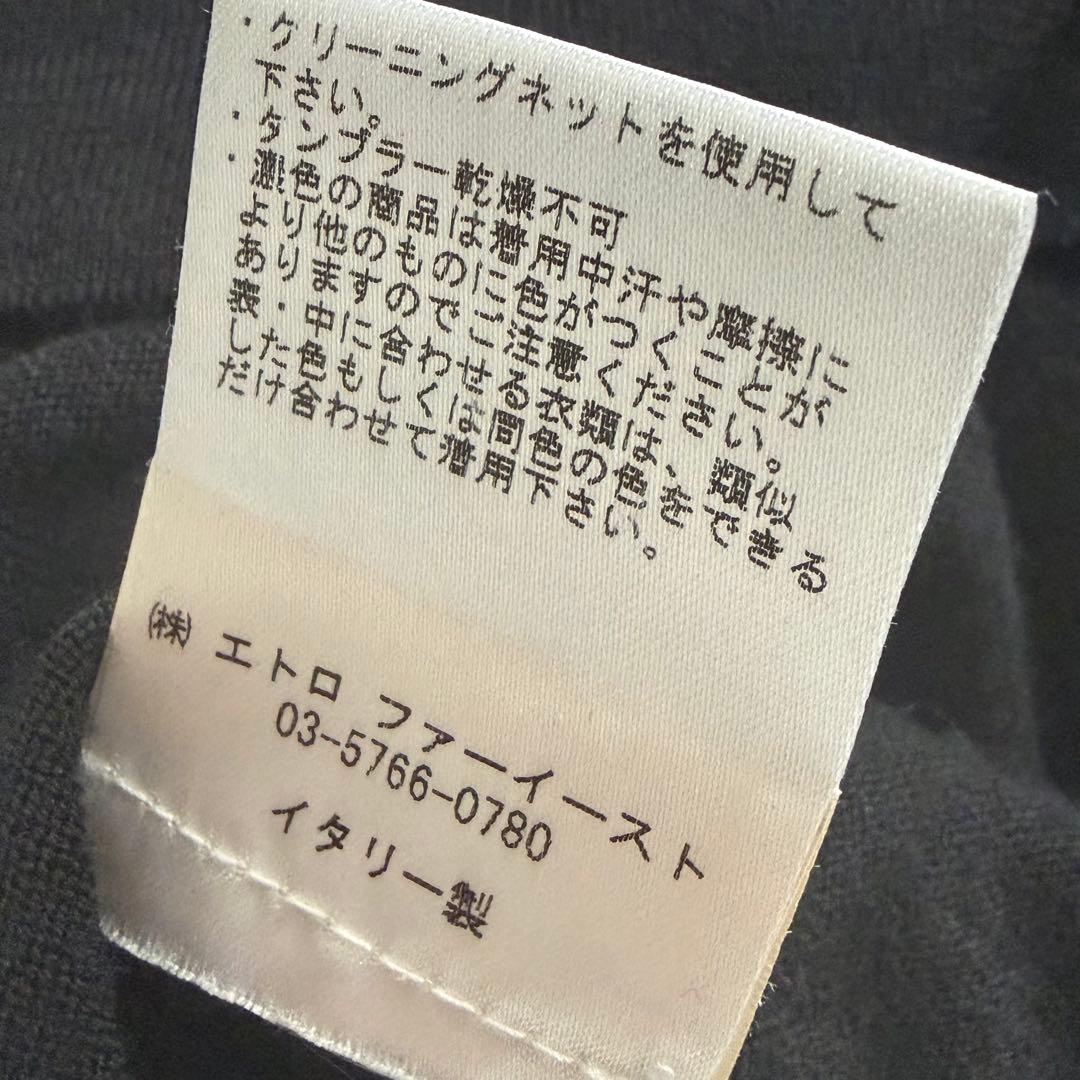 ・クリーニングネットを使用して
下さい。
・タンブラー乾燥不可
・濃色の商品は着用中汗や摩擦に
より他のものに色がつくことが
ありますのでご注意ください。
・中に合わせる衣類は、類似
した色もしくは同色の色をできる
だけ合わせて着用下さい。
㈱ エトロ ファーイースト
03-5766-0780
イタリー製